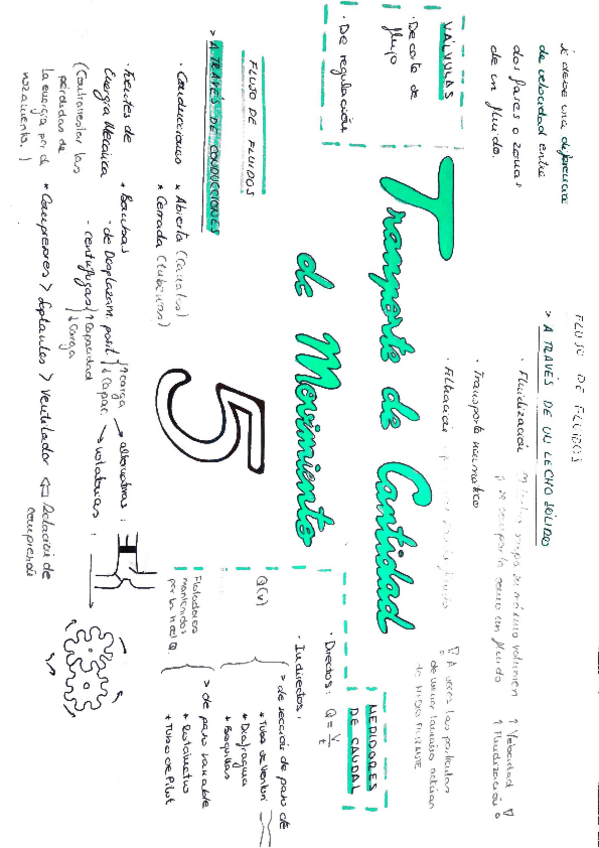 5
Transporte de Cantidad
de Movimiento
* debe una diferencia
de velocidad entre
dos fases o zonas
de un fluido.
VÁLVULAS
· De corte de
flujo
· De regulación
FLUJO DE FLUIDOS
> A TRAVÉS DE CONDUCCIONES
· Conducciones * Abierta (canales)
* Cerrada (tuberías)
· Fuentes de
Energía Mecánica
(Contrarrestar las
pérdidas de
la energía por el
rozamiento.)
* Bombas
· de Desplazam. posit. ↑ carga
↓ capac.
→ alternativas :
→ rotatorias :
- centrífugas ↑ Capacidad
↓ Carga
* Compresores > Soplantes > Ventilador ⇐ Relación de
compresión
FLUJO DE FLUIDOS
> A TRAVÉS DE UN LECHO SÓLIDO
· Fluidización
↑ Velocidad
↑ Fluidización
· Transporte neumático
· Filtración
A veces las partículas
de menor tamaño actúan
de MEDIO FILTRANTE
MEDIDORES
DE CAUDAL
· Directos: Q = V/t
· Indirectos:
Q(v)
> de sección de paso de
* Tubo de Venturi
* Diafragma
* Boquillas
Flotadores
mantenidos
por la
> de paso variable
* Rotámetro
* Tubo de Pitot